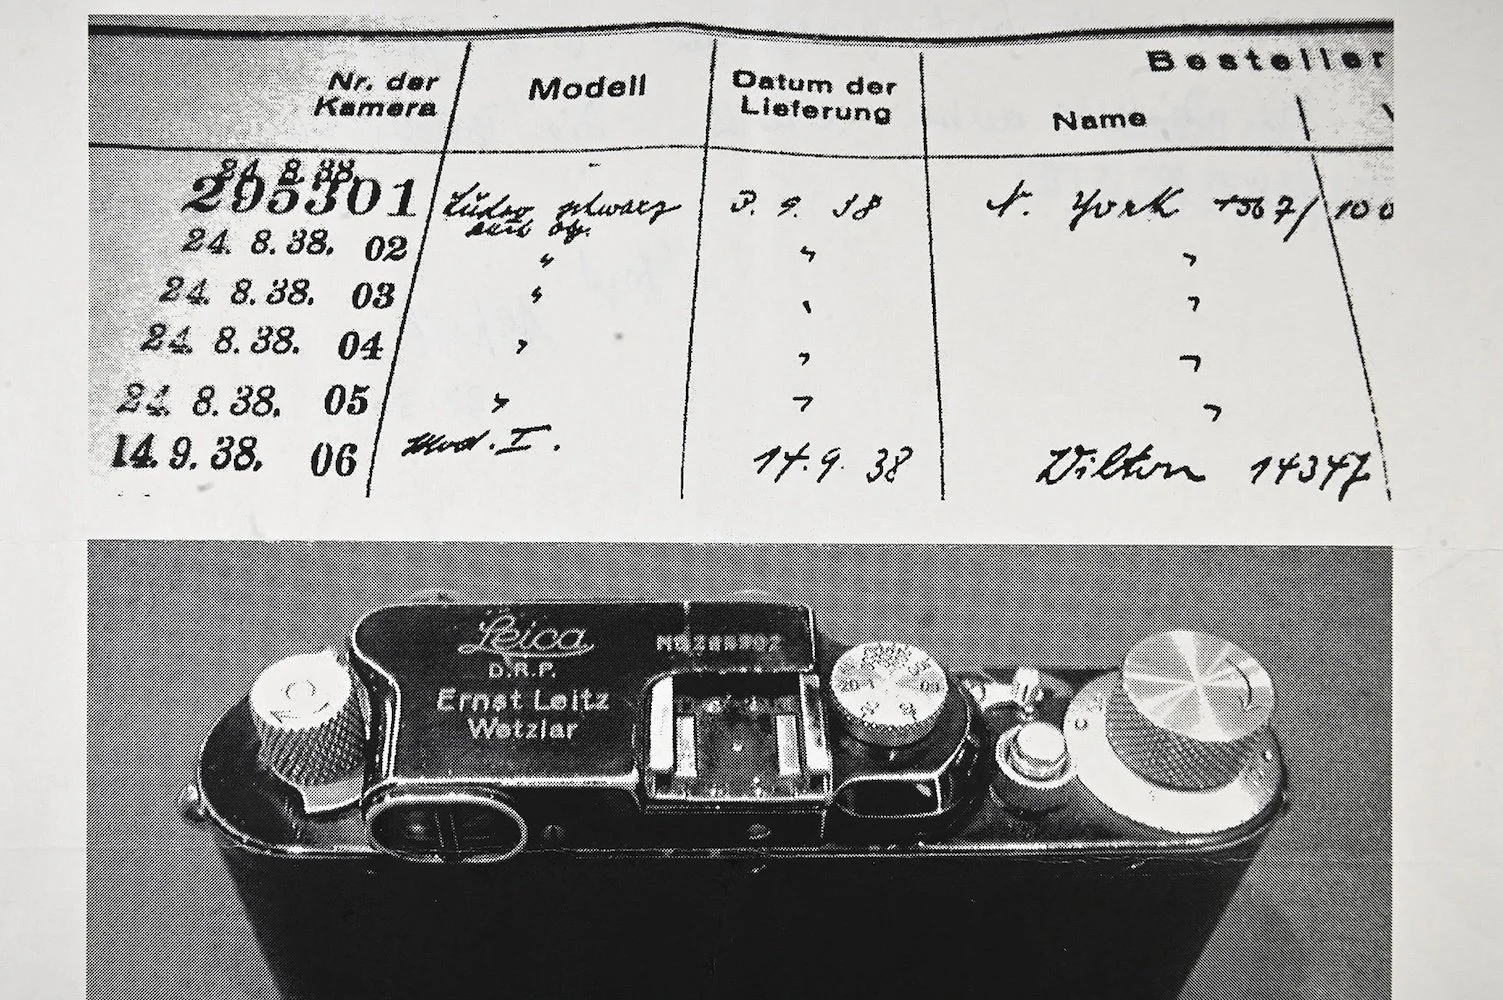 Nr. der Kamera Modell Datum der Lieferung Besteller Name
24. 8. 38.
295301 schwarz 3. 9. 38 N. York 1567/100
24. 8. 38. 02 " " "
24. 8. 38. 03 " " "
24. 8. 38. 04 " " "
24. 8. 38. 05 " " "
14. 9. 38. 06 Mod. I. 14. 9. 38 Wilton 14347
Leica
D.R.P.
Ernst Leitz
Wetzlar